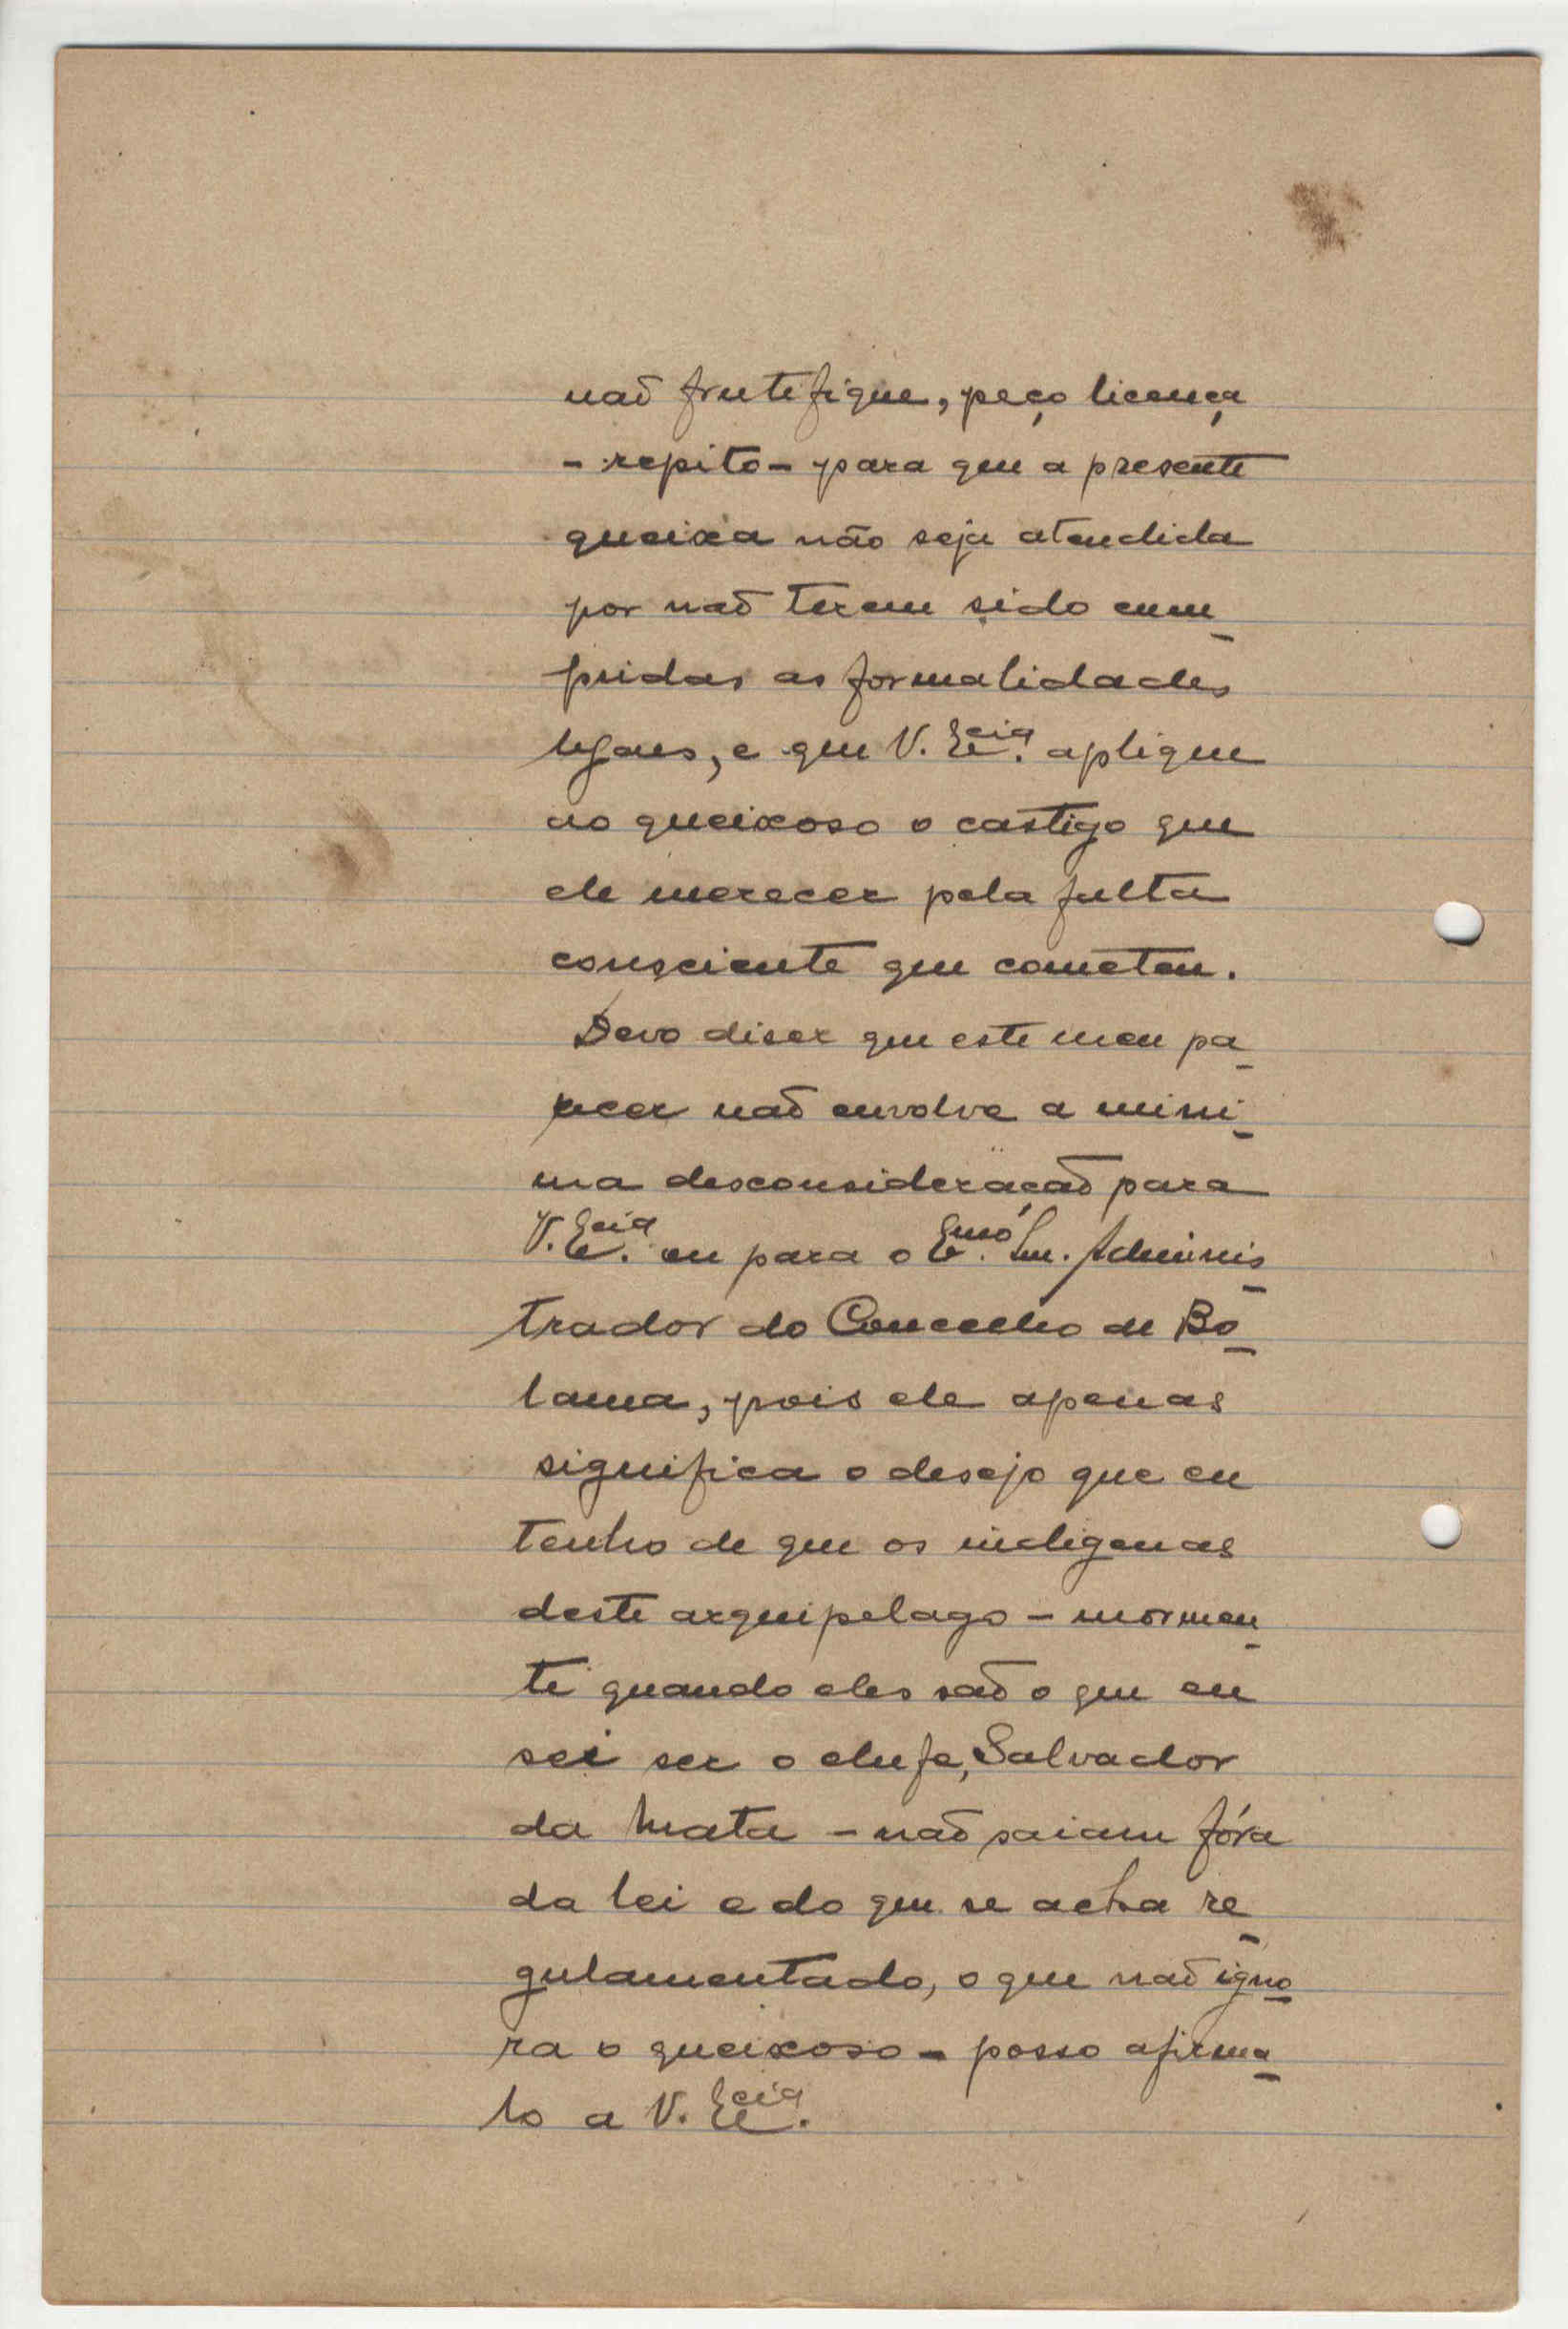 não frutifique, peço licença
- repito - para que a presente
queixa não seja atendida
por não terem sido cum_
pridas as formalidades
legaes, e que V. Ex.cia aplique
ao queixoso o castigo que
ele merecer pela falta
consciente que cometeu.
Devo diser que este meu pa_
recer não envolve a mini_
ma desconsideração para
V. Ex.cia ou para o Ex.mo Snr. Adminis_
trador do Concelho de Bo_
lama, pois ele apenas
significa o desejo que eu
tenho de que os indigenas
deste arquipelago - mormen_
te quando eles são o que eu
sei ser o chefe, Salvador
da Mata - não saiam fóra
da lei e do que se acha re_
gulamentado, o que não igno_
ra o queixoso - posso afirma_
lo a V. Ex.cia.